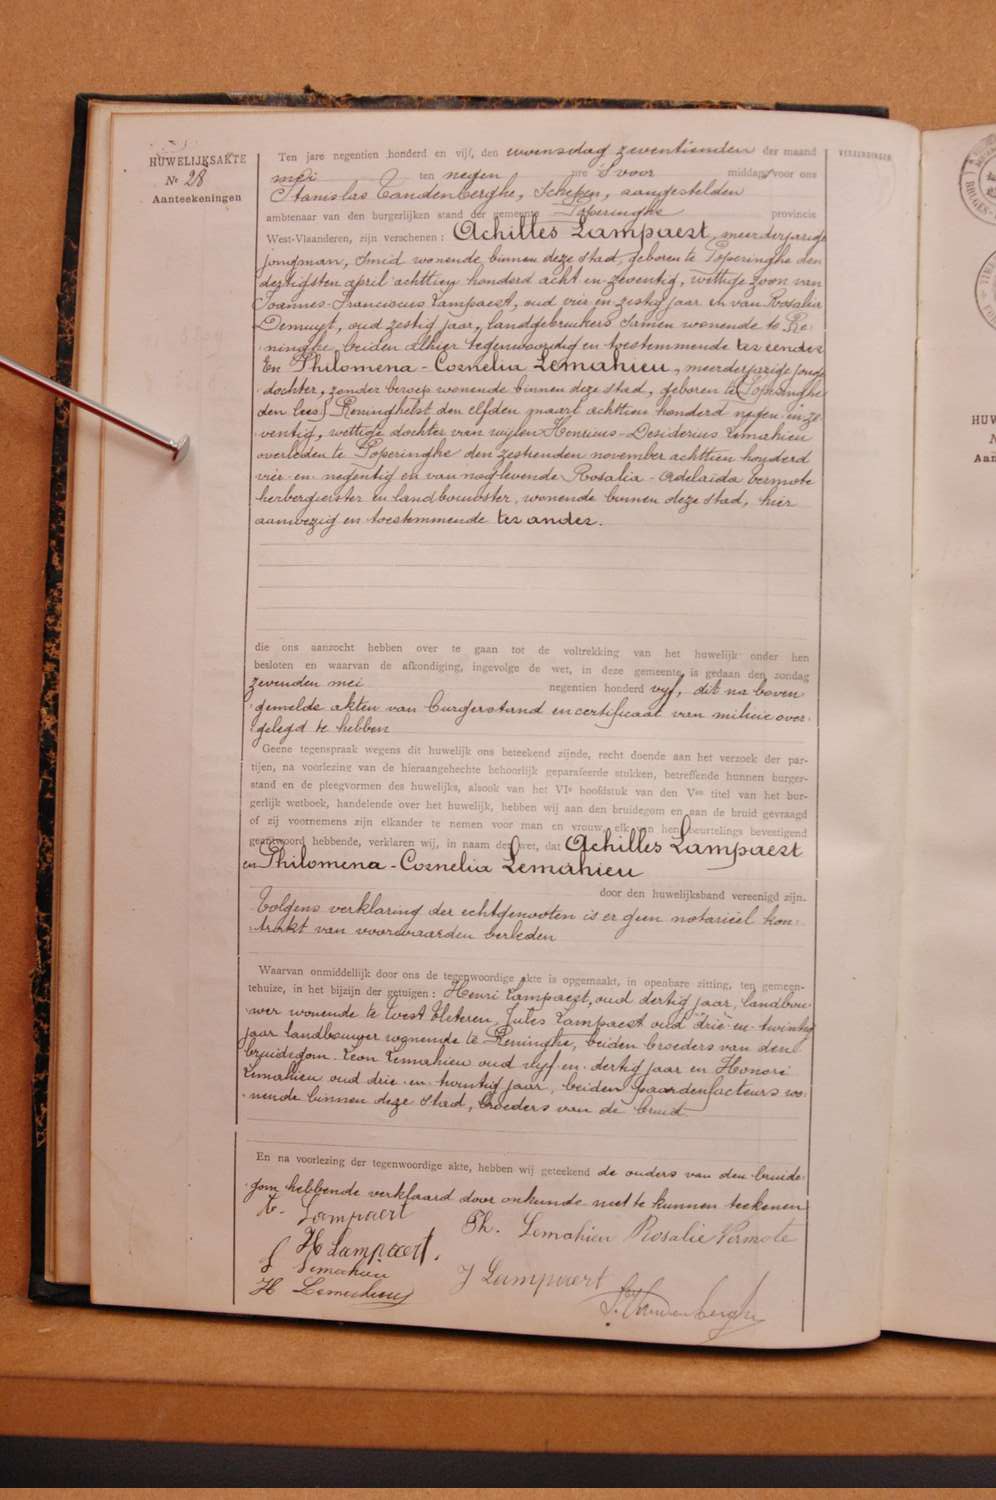 HUWELIJKSAKTE
Nr 28
Aanteekeningen
VERZENDINGEN
Ten jare negentien honderd en vijf, den woensdag zeventienden der maand
mei ten negen ure 's voor middag voor ons
Stanislas Vandenberghe, Schepen, aangestelden
ambtenaar van den burgerlijken stand der gemeente Poperinghe provincie
West-Vlaanderen, zijn verschenen : Achilles Lampaert, meerderjarige
jongman, smid wonende binnen deze stad, geboren te Poperinghe den
dertigsten april achttien honderd acht en zeventig, wettige zoon van
Joannes-Franciscus Lampaert, oud vier en zestig jaar en van Rosalia
Demuyt, oud zestig jaar, landgebruikers samen wonende te Re-
ninghe, beiden alhier tegenwoordig en toestemmende ter eender
En Philomena-Cornelia Lemahieu, meerderjarige jonge
dochter, zonder beroep wonende binnen deze stad, geboren te (Poperinghe
den lees) Reninghelst den elfden maart achttien honderd negen-en-ze-
ventig, wettige dochter van wijlen Henricus-Desiderius Lemahieu
overleden te Poperinghe den zestienden november achttien honderd
vier-en-negentig en van nog levende Rosalia-Adelaïda Vermote
herbergierster en landbouwster, wonende binnen deze stad, hier
aanwezig en toestemmende ter ander.
die ons aanzocht hebben over te gaan tot de voltrekking van het huwelijk onder hen
besloten en waarvan de afkondiging, ingevolge de wet, in deze gemeente is gedaan den zondag
zevenden mei negentien honderd vijf, dit na boven
gemelde akten van burgerstand en certificaat van milicie over-
gelegd te hebben
Geene tegenspraak wegens dit huwelijk ons beteekend zijnde, recht doende aan het verzoek der par-
tijen, na voorlezing van de hieraangehechte behoorlijk geparafeerde stukken, betreffende hunnen burger-
stand en de pleegvormen des huwelijks, alsook van het VIe hoofdstuk van den Ven titel van het bur-
gerlijk wetboek, handelende over het huwelijk, hebben wij aan den bruidegom en aan de bruid gevraagd
of zij voornemens zijn elkander te nemen voor man en vrouw, elk van hen beurtelings bevestigend
geantwoord hebbende, verklaren wij, in naam der wet, dat Achilles Lampaert
en Philomena-Cornelia Lemahieu
door den huwelijksband vereenigd zijn.
Volgens verklaring der echtgenooten is er geen notarieel kon-
trakt van voorwaarden verleden
Waarvan onmiddelijk door ons de tegenwoordige akte is opgemaakt, in openbare zitting, ten gemeen-
tehuize, in het bijzijn der getuigen : Henri Lampaert, oud dertig jaar, landbou-
wer wonende te West Vleteren, Jules Lampaert oud drie-en-twintig
jaar landbouwer wonende te Reninghe, beiden broeders van den
bruidegom. Leon Lemahieu oud vijf-en-dertig jaar en Honoré
Lemahieu oud drie-en-twintig jaar, beiden paardenfacteurs wo-
nende binnen deze stad, broeders van de bruid.
En na voorlezing der tegenwoordige akte, hebben wij geteekend de ouders van den bruide-
gom hebbende verklaard door onkunde niet te kunnen teekenen
A. Lampaert
Ph. Lemahieu Rosalie Vermote
H Lampaert.
L Lemahieu
J Lampaert
H Lemahieu
S. Vandenberghe
HUW
N
Aan